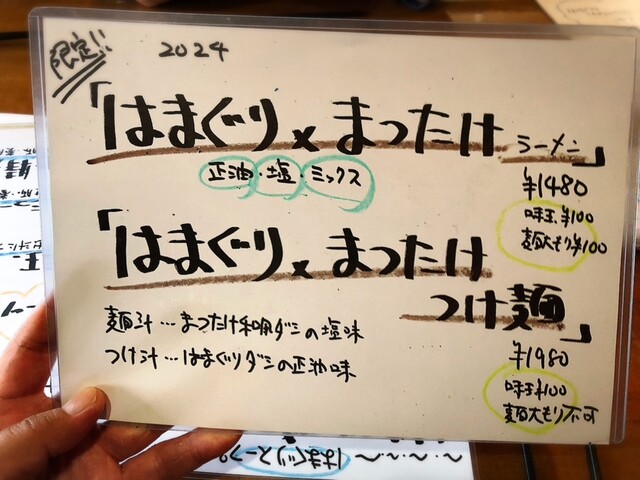 限定!!
2024
「はまぐり×まったけ ラーメン」
正油・塩・ミックス
¥1480
味玉¥100
麺大もり¥100
「はまぐり×まったけ
つけ麺」
麺汁…まつたけ和風ダシの塩味
つけ汁…はまぐりダシの正油味
¥1980
味玉¥100
麺大もり不可
はまぐりスープ